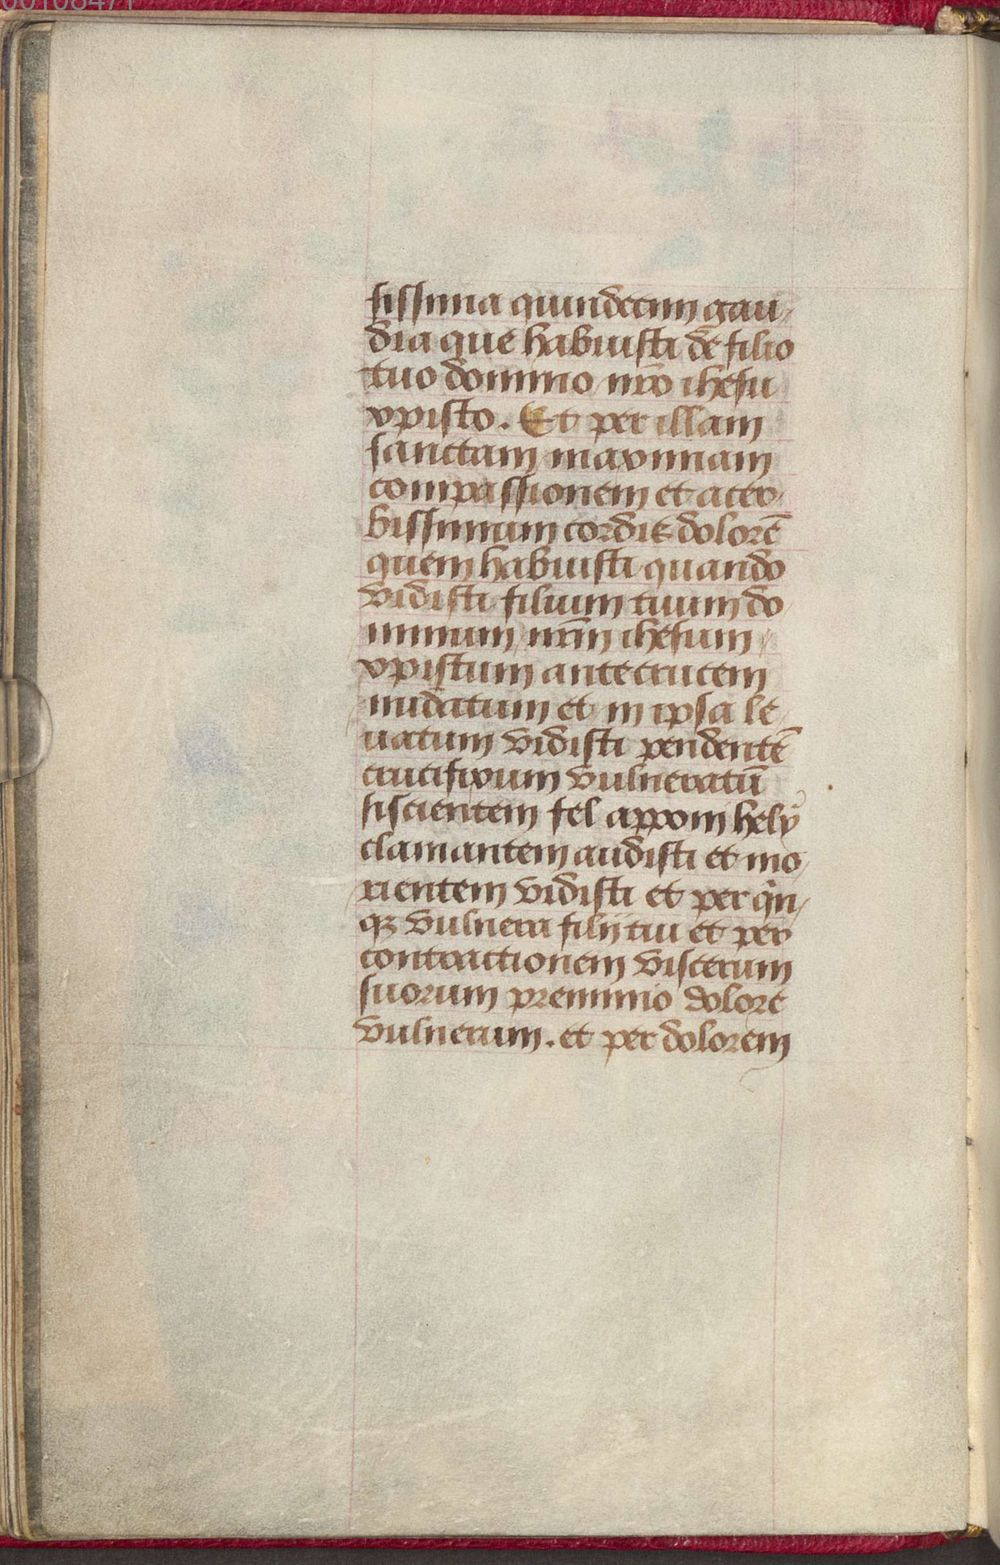 00108471
sissima quindecim gau-
dia que habuisti de filio
tuo domino nr̄o ihesu
xpisto. Et per illam
sanctam maximam
compassionem et acer-
bissimum cordis dolorē
quem habuisti quando
vidisti filium tuum do
minum nr̄m ihesum
xpistum ante crucem
nudatum et in ipsa le
uatum vidisti pendentē
crucifixum vulneratū
siscientem fel apponi hely
clamantem audisti et mo-
rientem vidisti et per qͥn-
qꝫ vulnera filij tui et per
contractionem viscerum
suorum pre nimio dolore
vulnerum. et per dolorem